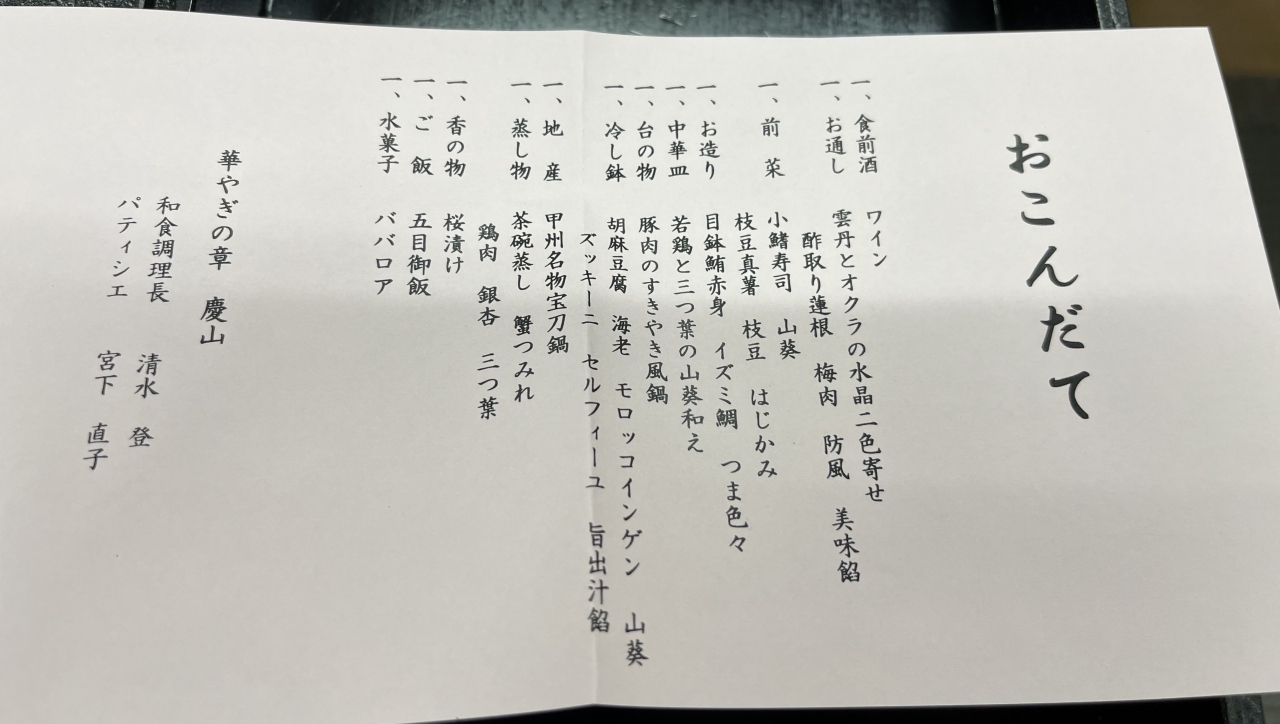 おこんだて
一、食前酒 ワイン
一、お通し 雲丹とオクラの水晶二色寄せ
酢取り蓮根 梅肉 防風 美味餡
一、前菜 小鰭寿司 山葵
枝豆真薯 枝豆 はじかみ
一、お造り 目鉢鮪赤身 イズミ鯛 つま色々
一、中華皿 若鶏と三つ葉の山葵和え
一、台の物 豚肉のすきやき風鍋
一、冷し鉢 胡麻豆腐 海老 モロッコインゲン 山葵
ズッキーニ セルフィーユ 旨出汁餡
一、地産 甲州名物宝刀鍋
一、蒸し物 茶碗蒸し 蟹つみれ
鶏肉 銀杏 三つ葉
一、香の物 桜漬け
一、ご飯 五目御飯
一、水菓子 ババロア
華やぎの章 慶山
和食調理長 清水 登
パティシエ 宮下 直子